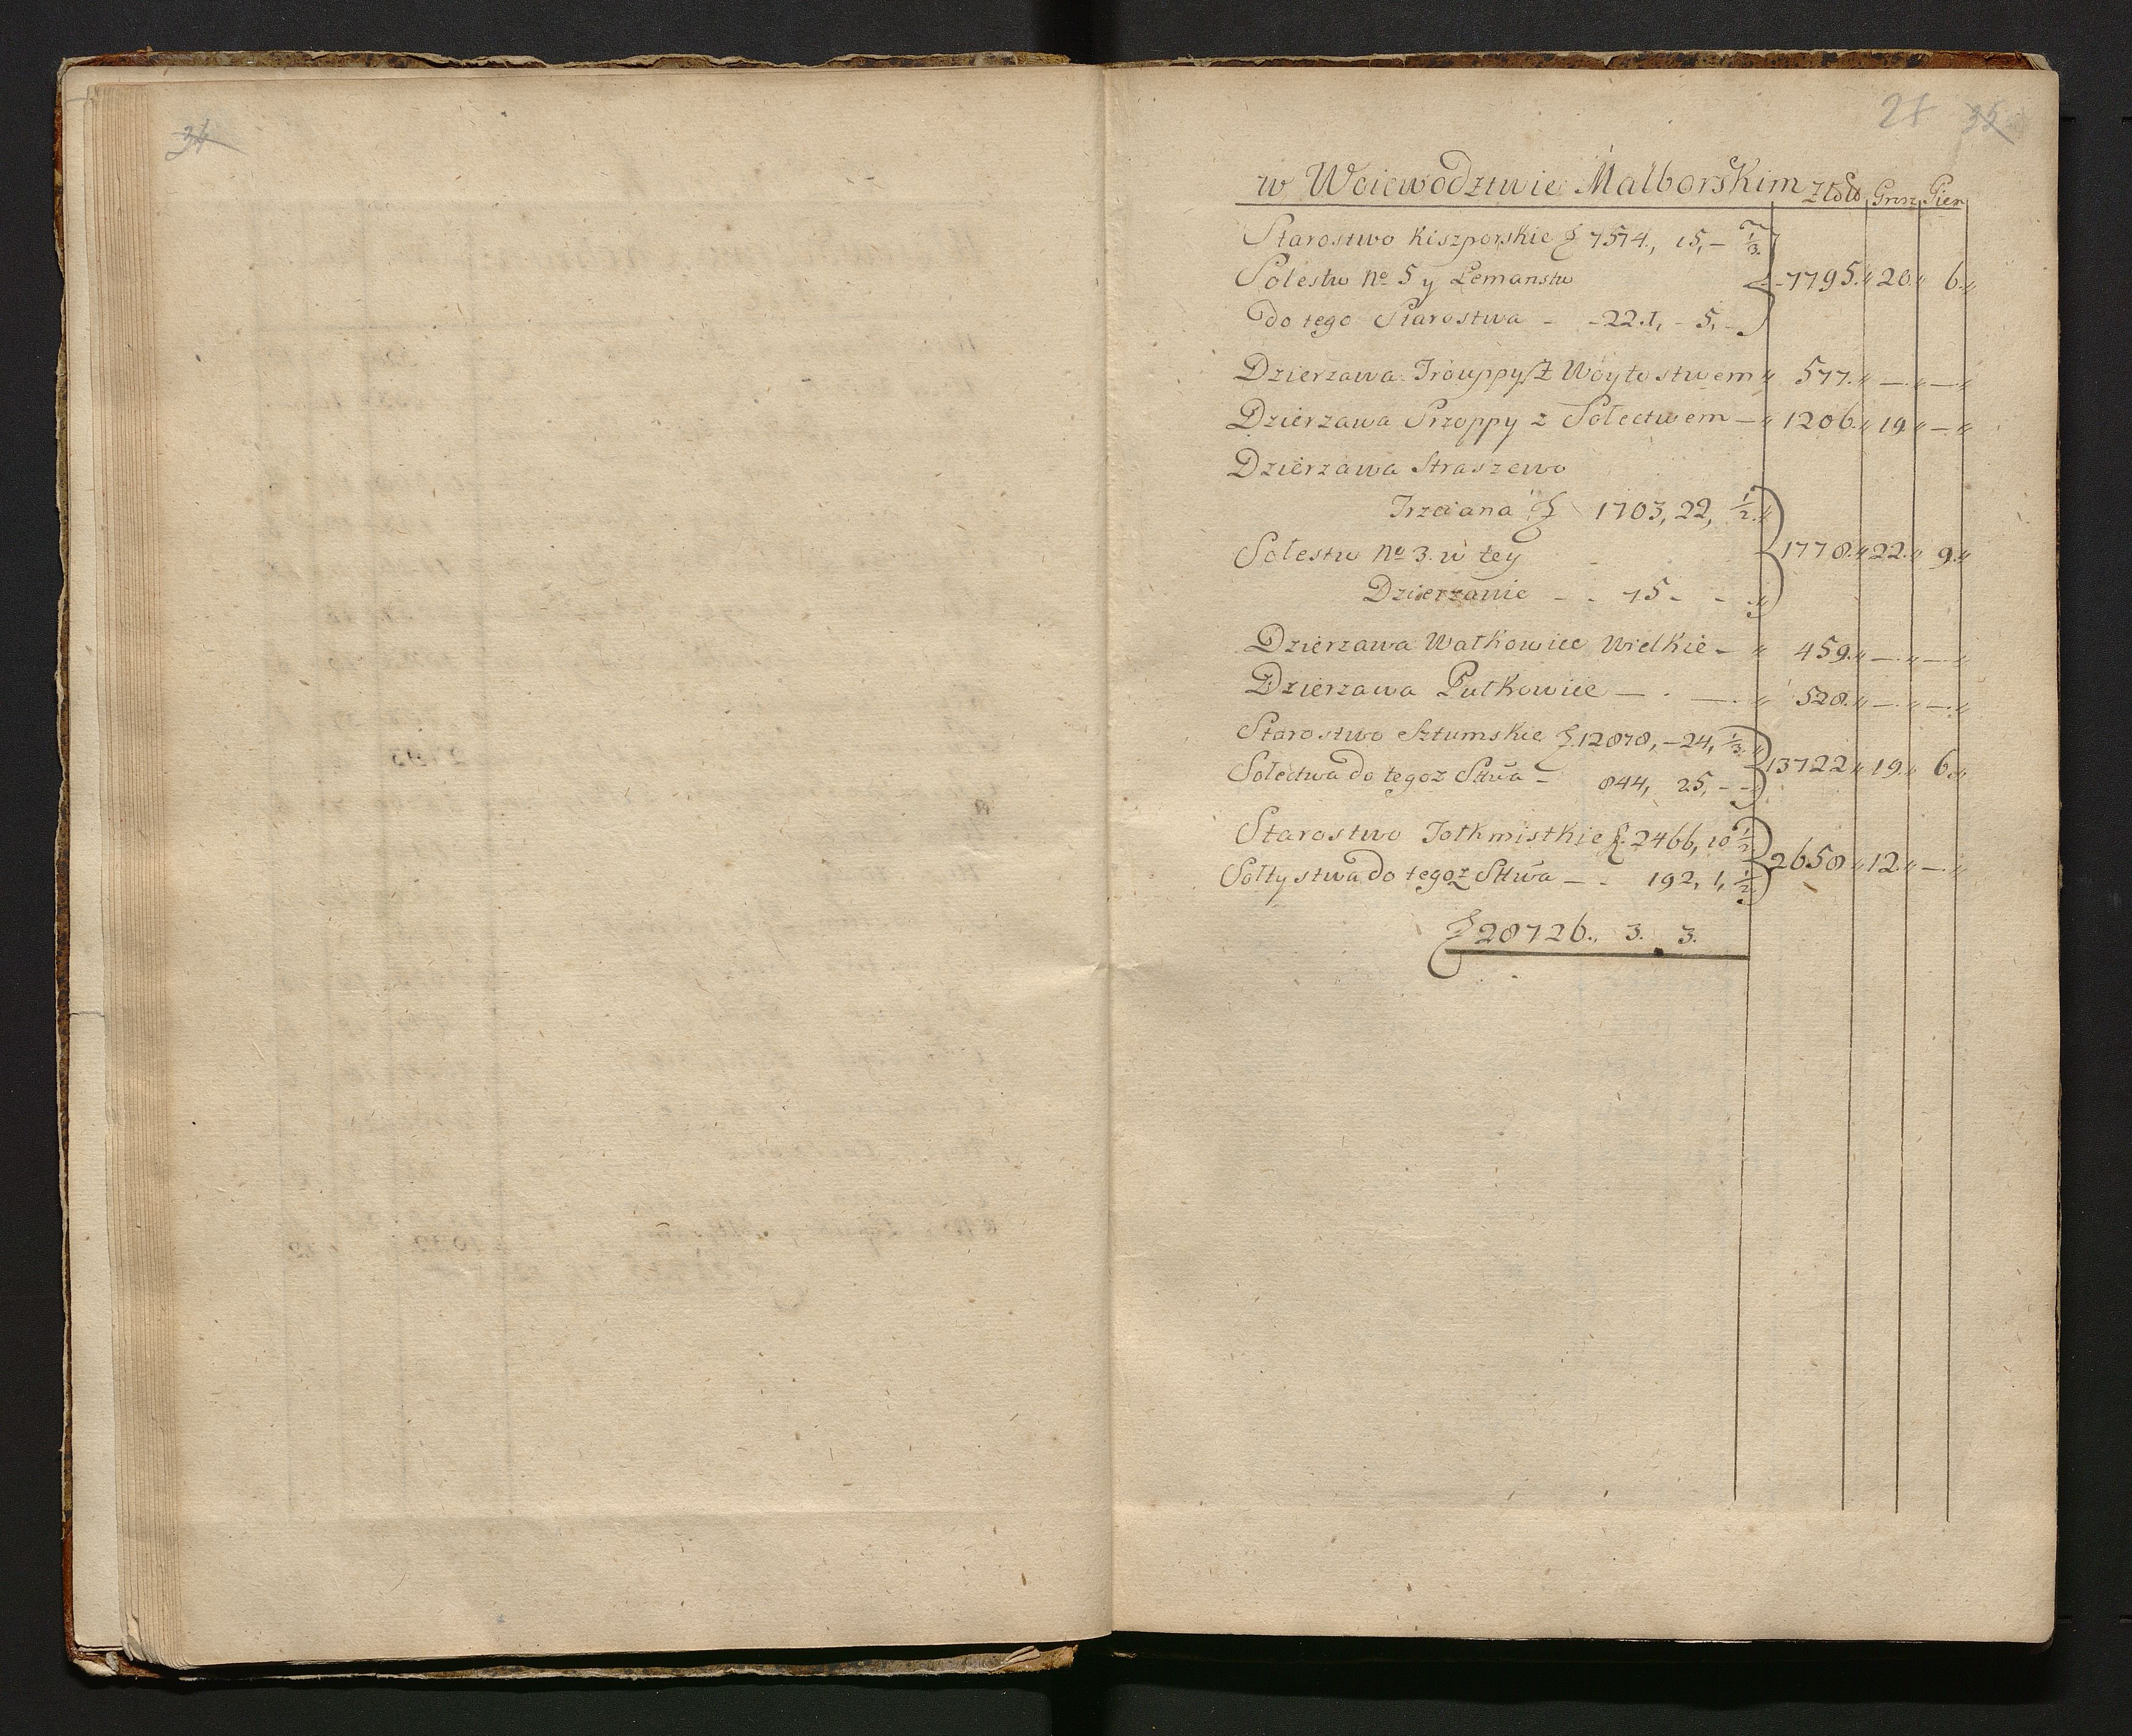 34
25 35
w Woiewodztwie Malborskim Złote Grosz Pien
Starostwo Kiszporskie f 7574,, 15,- 1/3.
Solestw No 5 y Lemanstw
7795.,, 20.,, 6.,,
do tego Starostwa - -221,- 5,-
Dzierzawa Trouppy z Woytostwem ,, 577.,, —.,, —.,,
Dzierzawa Przoppy z Sołectwem —,, 1206.,, 19,, —,,
Dzierzawa Straszewo
Trzciana f 1703, 22, 1/2.,,
Sołestw No 3. w tey
1778.,, 22.,, 9.,,
Dzierzawie - - 75 - - -,,
Dzierzawa Watkowice Wielkie - ,, 459.,, —.,, —.,,
Dzierzawa Pulkowice — . —. ,, 528.,, —.,, —.,,
Starostwo Sztumskie f. 12878, - 24, 1/3.,,
13722,, 19.,, 6.,,
Sołectwa do tegoz Sttwa - 844, 25, - -
Starostwo Tolkmistkie f. 2466, 10 1/2
2658,, 12.,, —.,,
Sołtystwa do tegoz Sttwa — - 192, 1, 1/2.
f 28726., 3. 3.